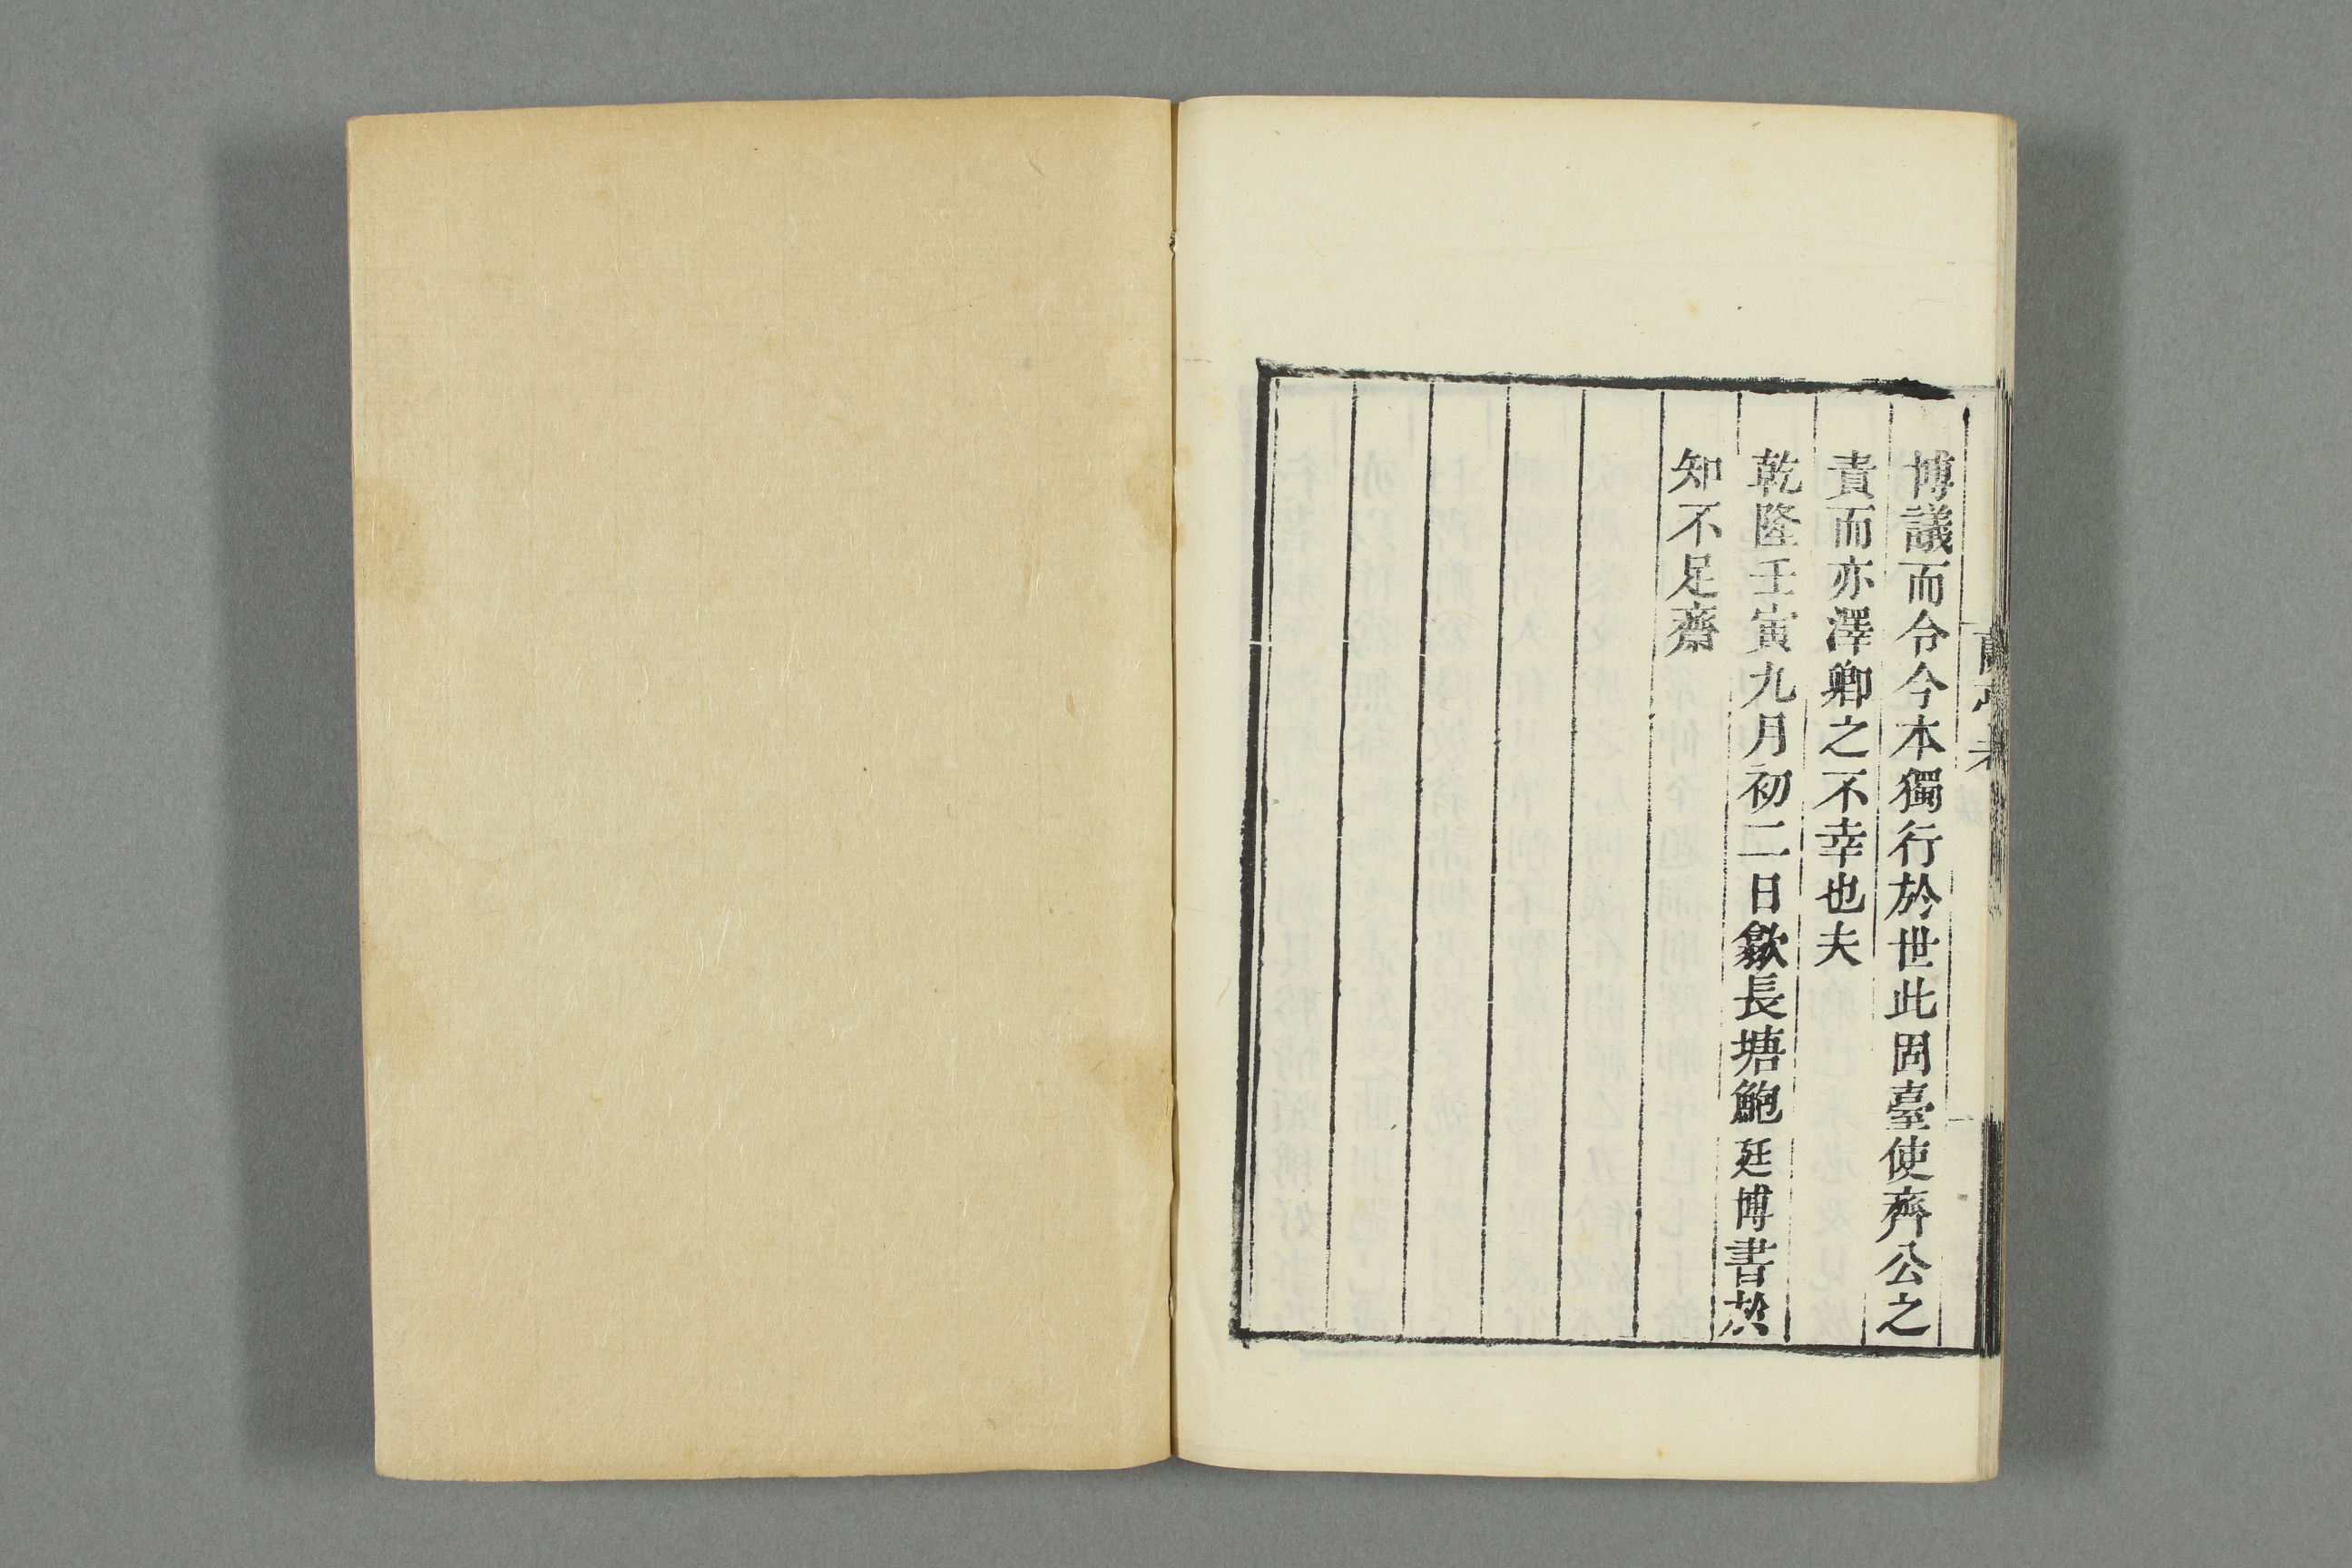 博議而令今本獨行於世此固臺使齊公之
責而亦澤卿之不幸也夫
乾隆壬寅九月初二日歙長塘鮑廷博書於
知不足齋
蘭亭考